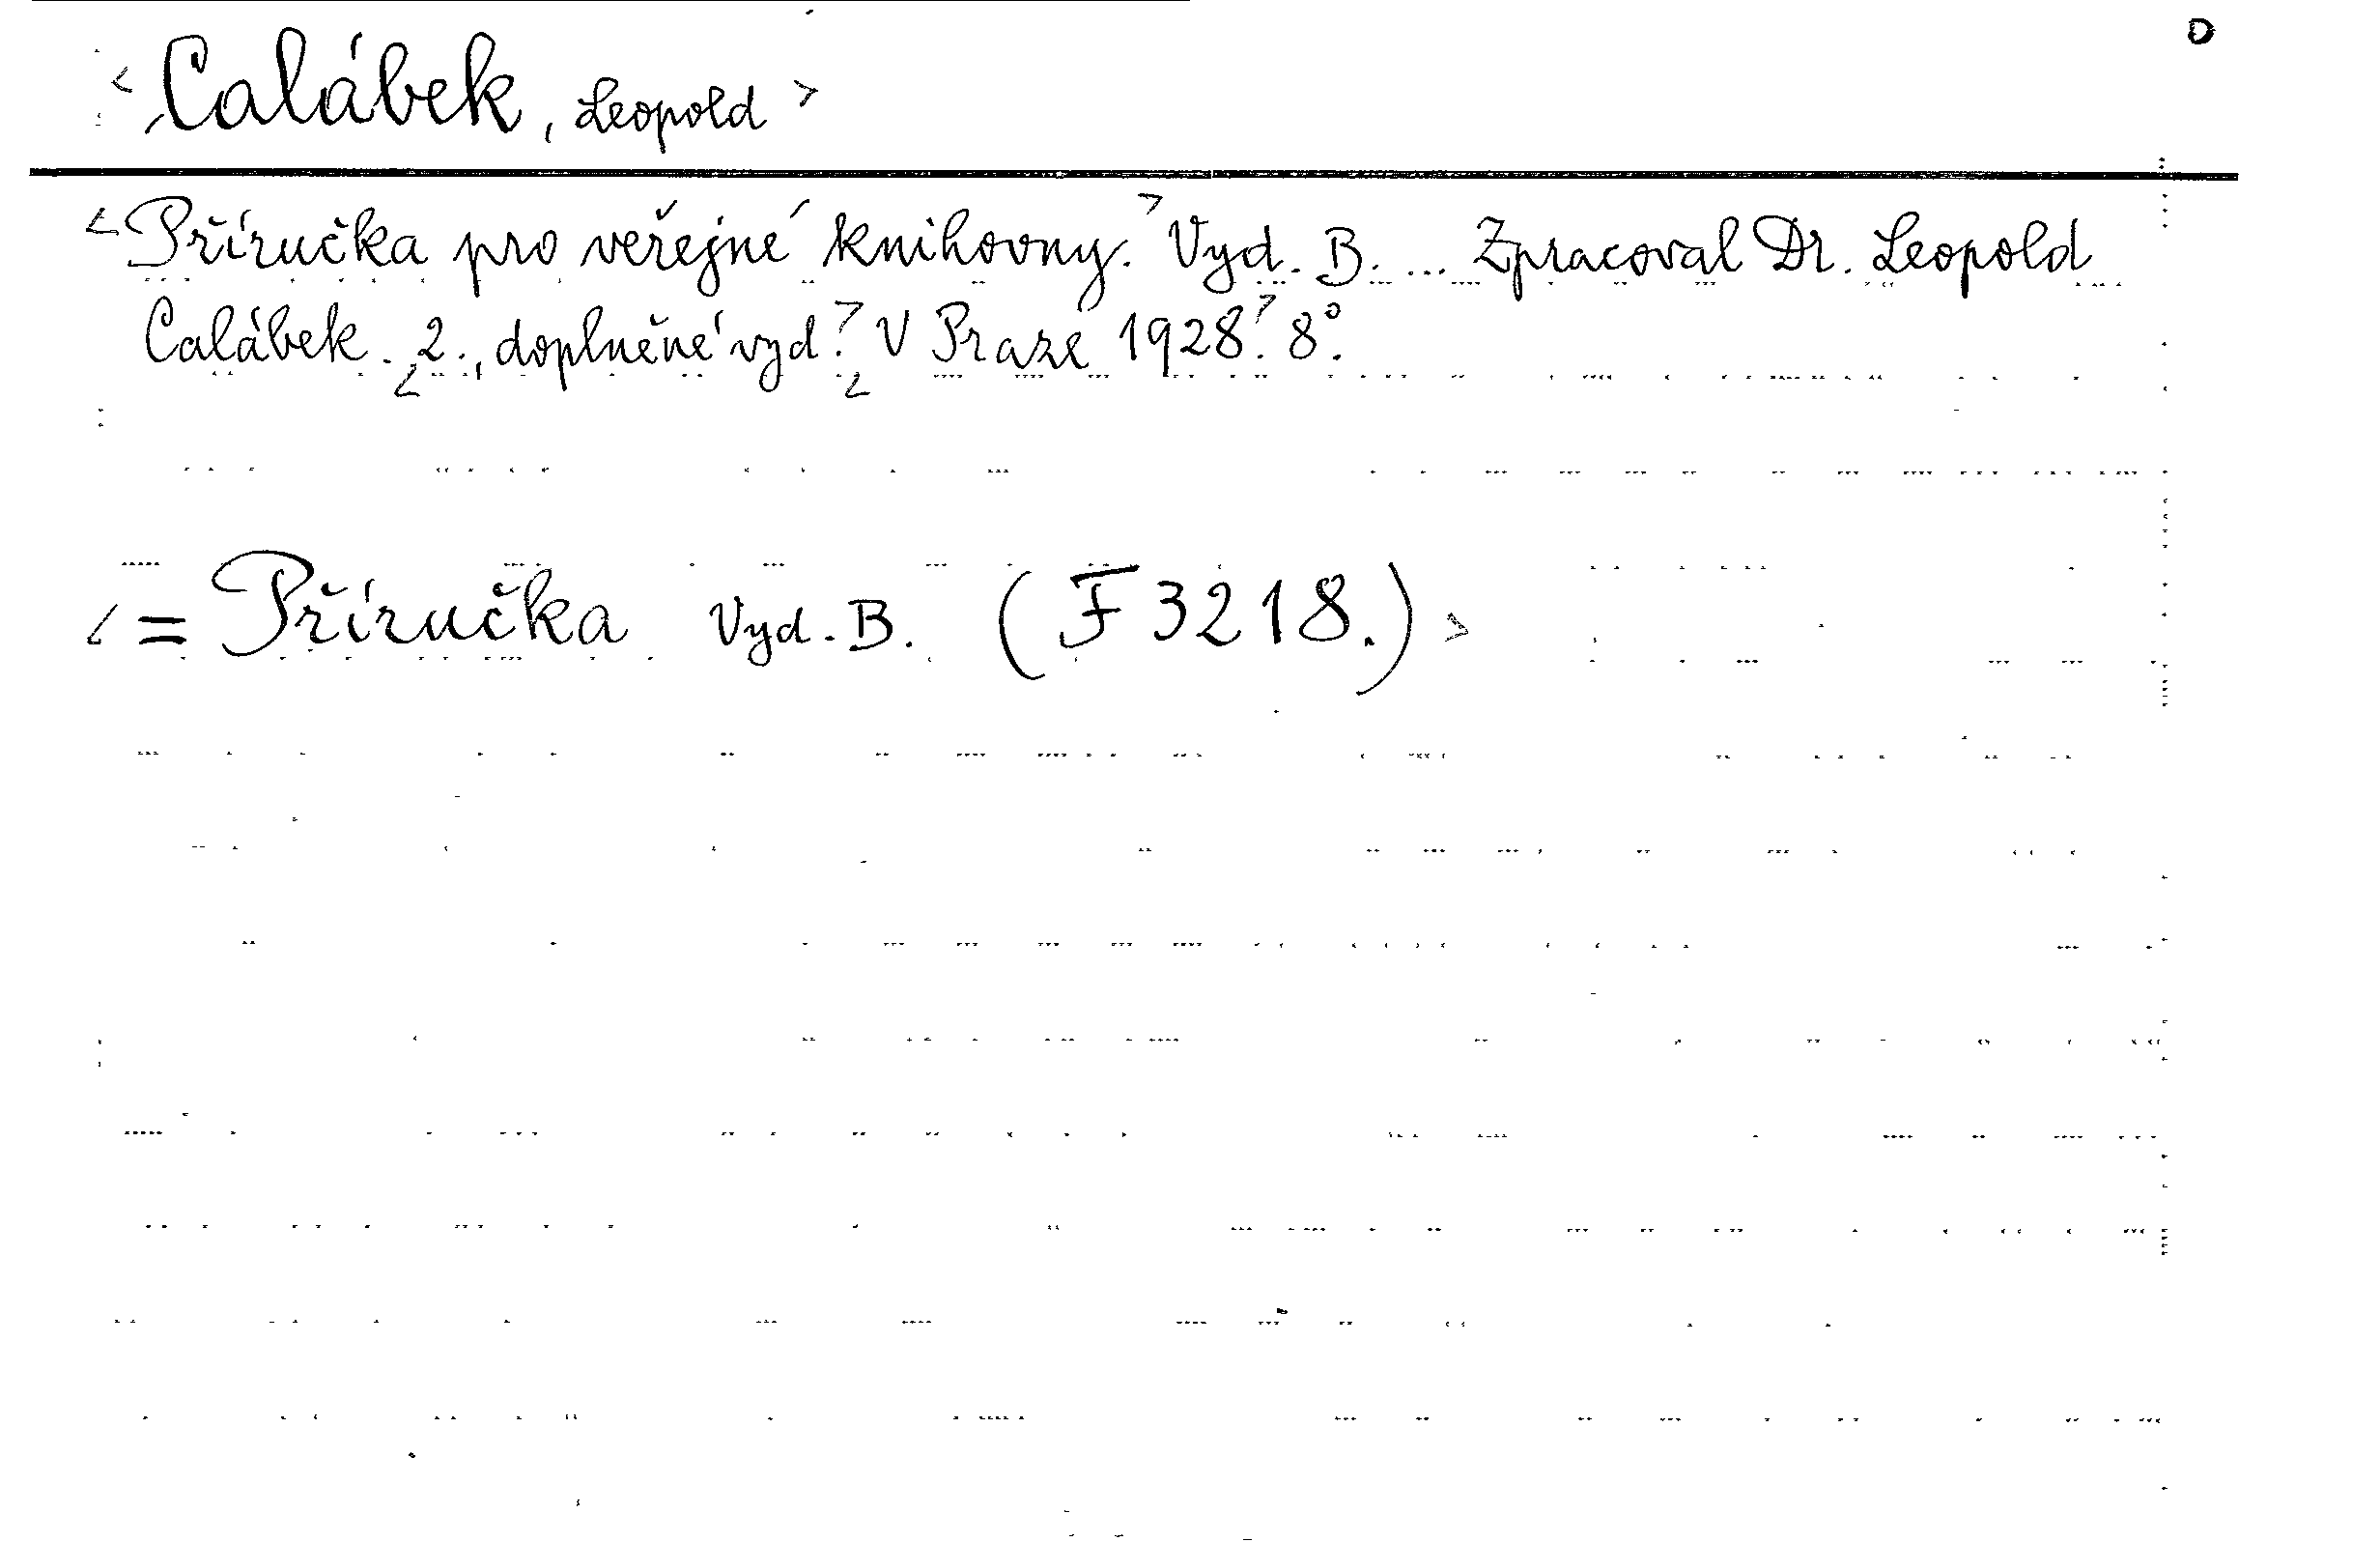 <Calábek, Leopold>
<Příručka pro veřejné knihovny.> Vyd. B. ... Zpracoval Dr. Leopold
Calábek. <2., doplněné vyd.> <V Praze 1928.> 8°.
<= Příručka Vyd. B. (F 3218.)>